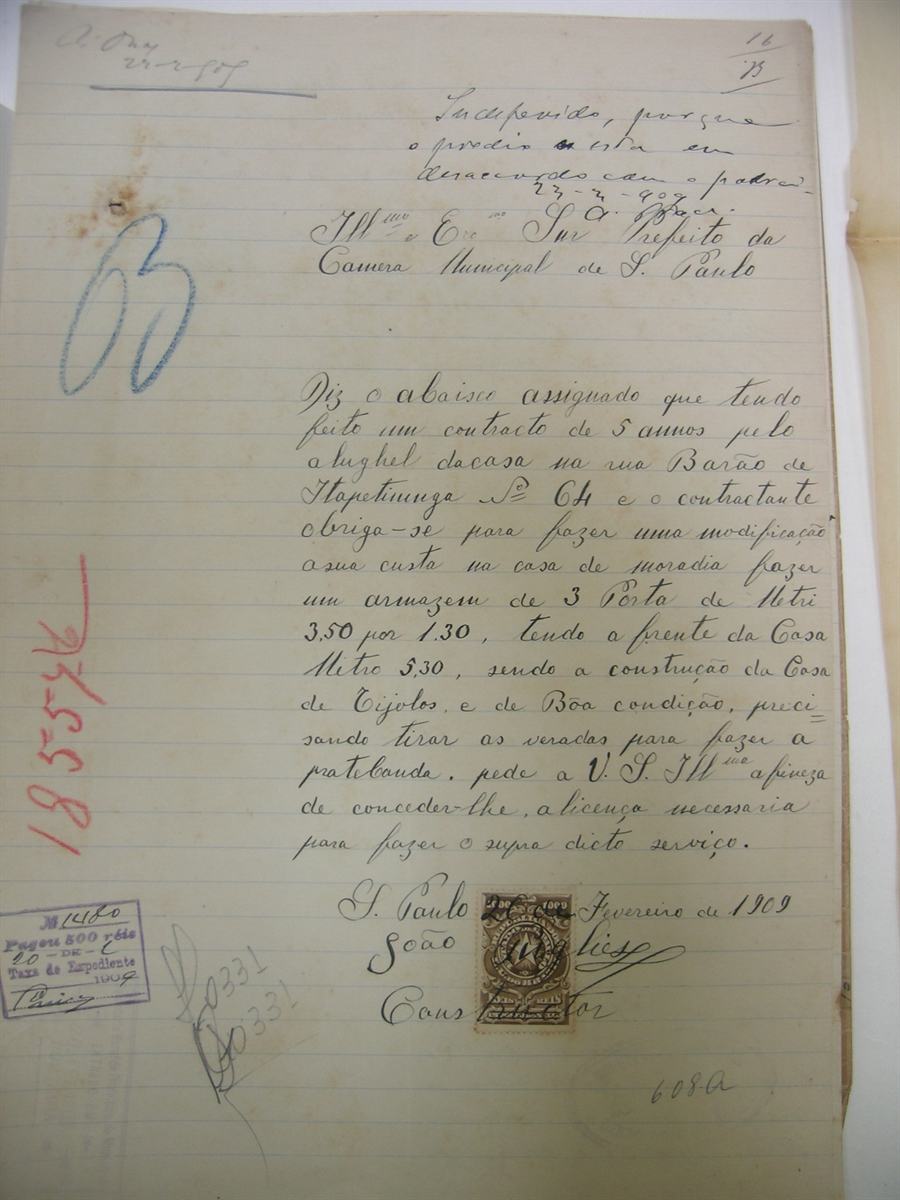 22-2-909
16
Indeferido, porque
o predio esta em
desaccordo com o padrão
23-2-909
Illmo e Exc mo Snr Prefeito da
Camera Municipal de S. Paulo
63
Diz o abaisco assignado que tendo
feito um contracto de 5 annos pelo
alughel dacasa na rua Barão de
Itapetininga No 64 e o contractante
obriga-se para fazer uma modificação
asua custa na casa de moradia fazer
um armazem de 3 Porta de Metri
3,50 por 1.30, tendo a frente da Casa
Metro 5,30, sendo a construção da Casa
de Tijolos, e de Bôa condição, preci=
sando tirar as veradas para fazer a
platebanda. pede a V. S. Illmo afineza
de conceder-lhe, a licença necessaria
para fazer o supra dicto serviço.
S. Paulo 20 de Fevereiro de 1909
João
Constructor
18554
No 1480
Pagou 500 réis
20 - DE - 2
Taxa de Expediente
1909
20331
20331
608A